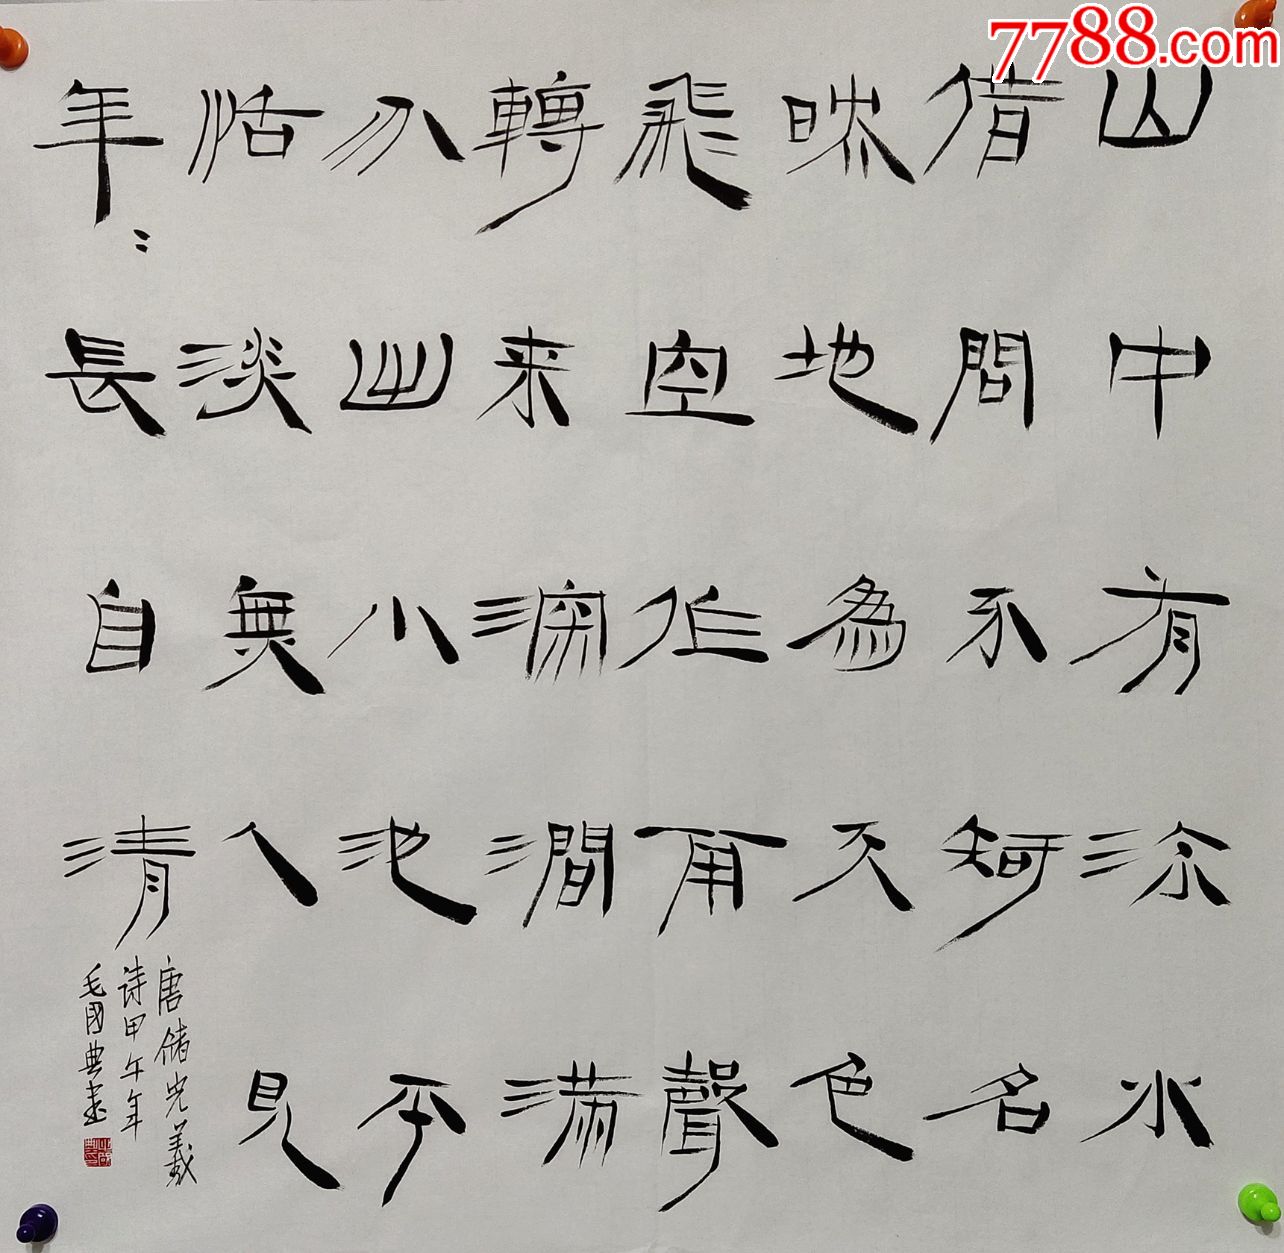 7788.com
山中有流水
借問不知名
映地為天色
飛空作雨聲
轉来深澗满
分出小池平
恬淡無人見
年々長自清
唐储光羲
诗甲午年
毛國典書